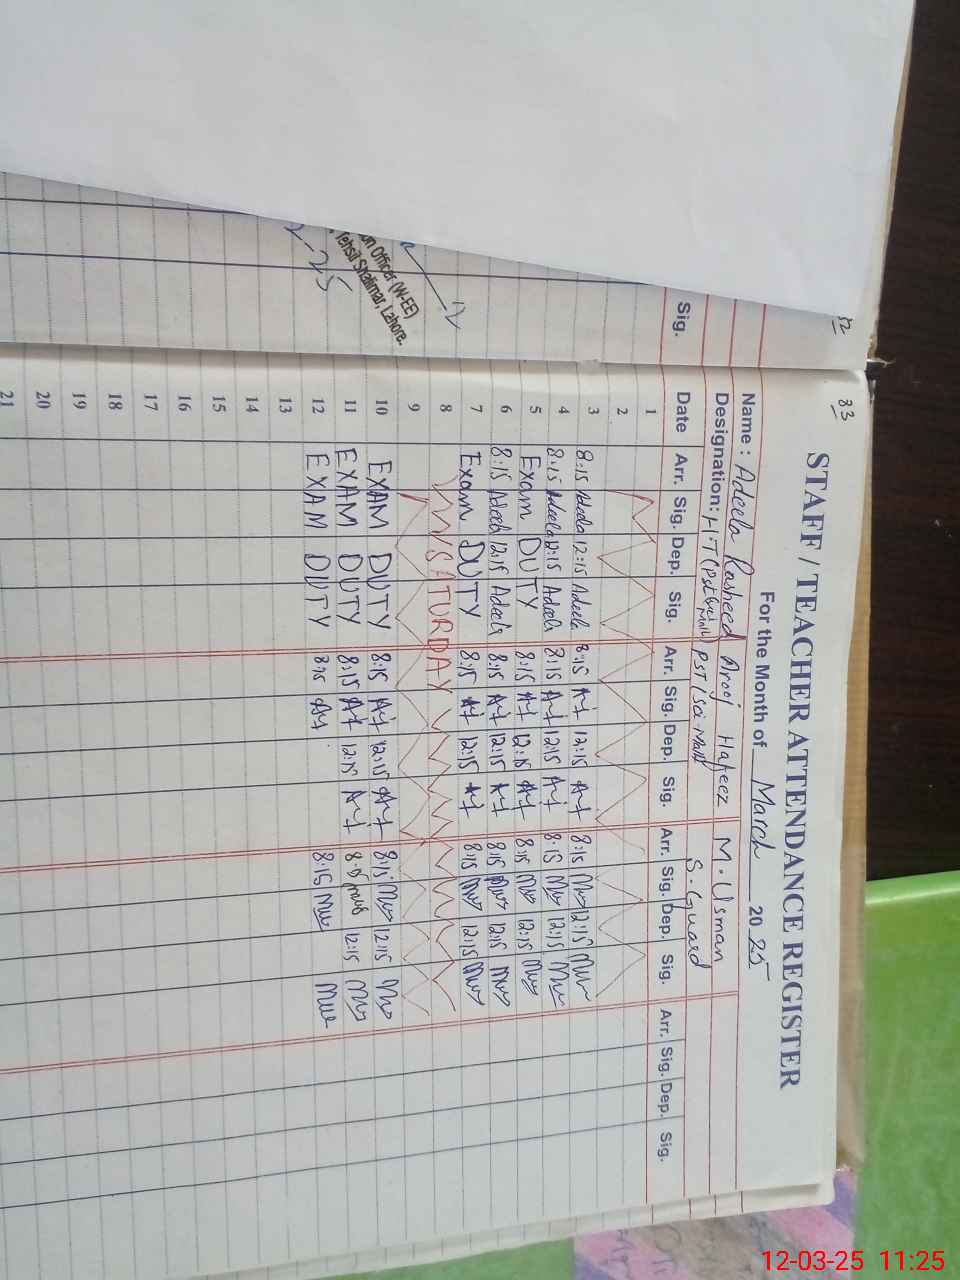 32
Sig.
on Officer (W-EE)
Tehsil Shalimar, Lahore.
2-25
33
STAFF / TEACHER ATTENDANCE REGISTER
For the Month of March 2025
Name : Adeela Rasheed Arooj Hafeez M. Usman
Designation: H.T PST (Sci-Math) S. Guard
Date Arr. Sig. Dep. Sig. Arr. Sig. Dep. Sig. Arr. Sig. Dep. Sig. Arr. Sig. Dep. Sig.
1
2
3 8:15 Adeela 12:15 Adeela 8:15 12:15 8:15 12:15
4 8:15 Adeela 12:15 Adeela 8:15 12:15 8:15 12:15
5 Exam DUTY 8:15 12:15 8:15 12:15
6 8:15 Adeela 12:15 Adeela 8:15 12:15 8:15 12:15
7 Exam DUTY 8:15 12:15 8:15 12:15
8 SATURDAY
9
10 EXAM DUTY 8:15 12:15 8:15 12:15
11 EXAM DUTY 8:15 12:15 8:15 12:15
12 EXAM DUTY 8:15 8:15
13
14
15
16
17
18
19
20
21
12-03-25 11:25